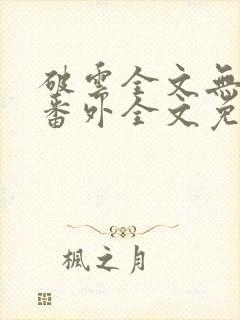 破雲全文無
番外全文免
楓之月